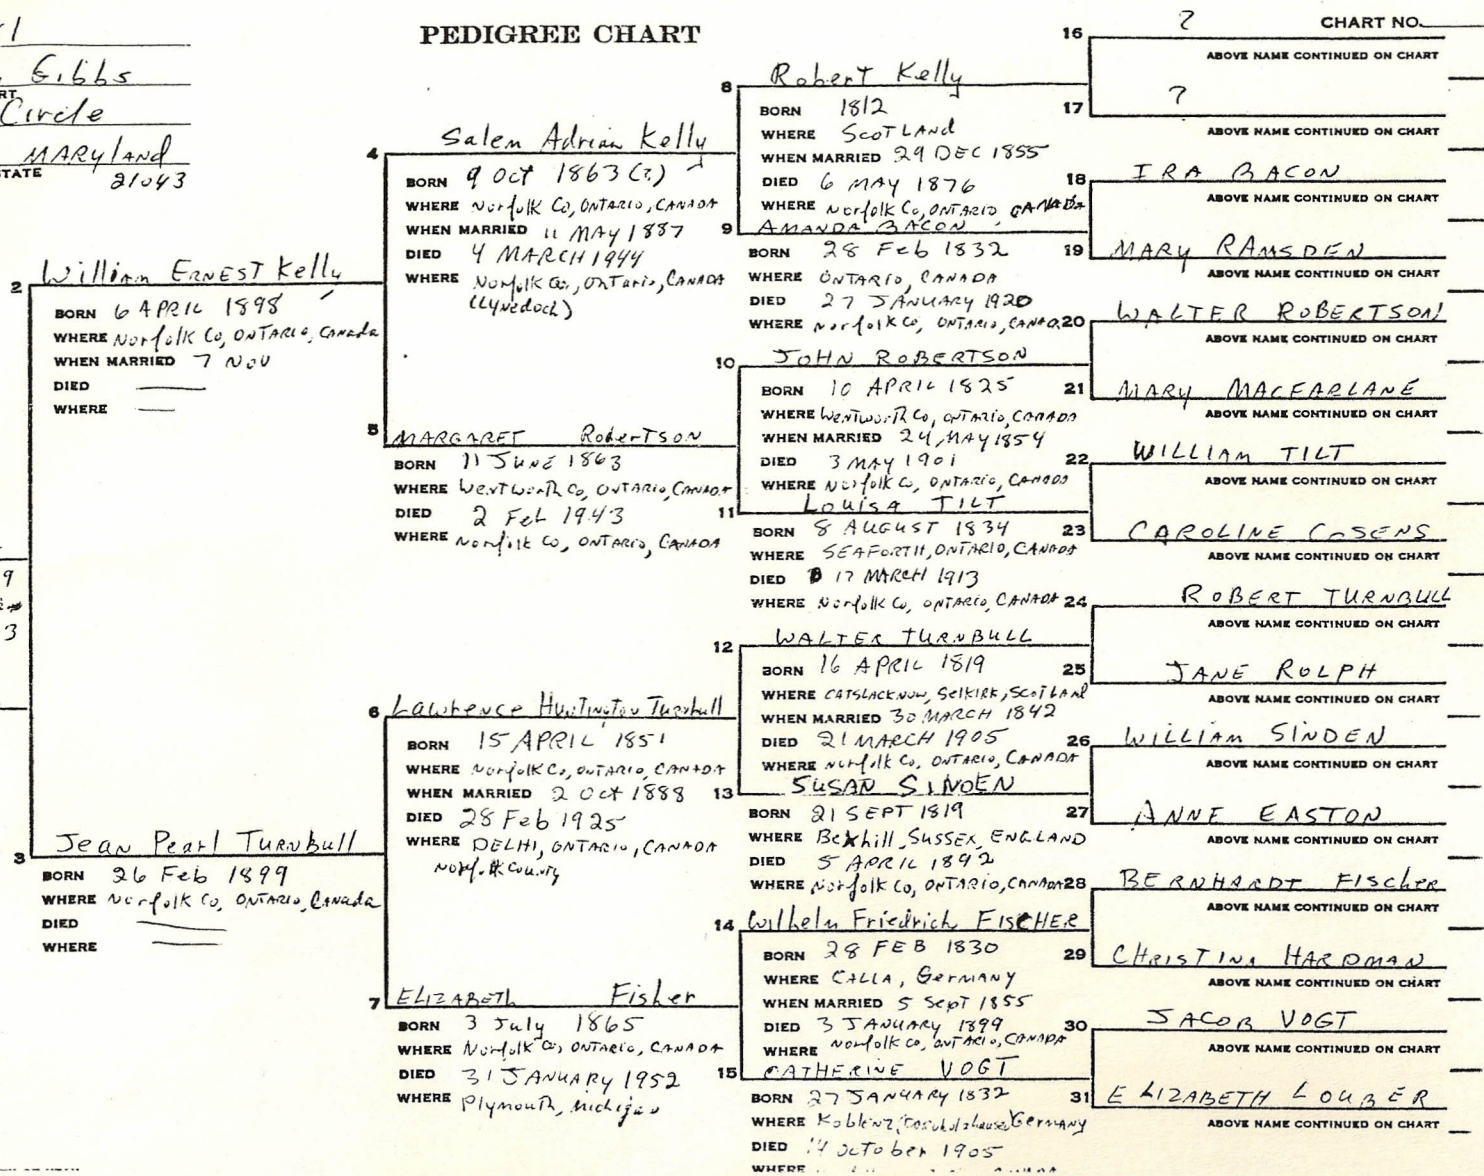 PEDIGREE CHART
CHART NO.
1
Gibbs
RT
Circle
MARYland
TATE
21043
9
3
2 William ERNEST Kelly
BORN 6 APRIL 1898
WHERE Norfolk Co, ONTARIO, Canada
WHEN MARRIED 7 NOV
DIED ——
WHERE ——
3 Jean Pearl Turnbull
BORN 26 Feb 1899
WHERE Norfolk Co, ONTARIO, Canada
DIED ——
WHERE ——
4 Salem Adrian Kelly
BORN 9 Oct 1863 (?)
WHERE Norfolk Co, ONTARIO, CANADA
WHEN MARRIED 11 MAY 1887
DIED 4 MARCH 1944
WHERE Norfolk Co., OnTario, CANADA
(Lynedoch)
5 MARGARET RoberTson
BORN 11 JUNE 1863
WHERE WentWorth Co, ONTARIO, CANADA
DIED 2 Feb 1943
WHERE Norfolk Co, ONTARIO, CANADA
6 Lawrence Huntington Turnbull
BORN 15 APRIL 1851
WHERE Norfolk Co, ONTARIO, CANADA
WHEN MARRIED 2 Oct 1888
DIED 28 Feb 1925
WHERE DELHI, ONTARIO, CANADA
Norfolk County
7 ELIZABETH Fisher
BORN 3 July 1865
WHERE Norfolk Co, ONTARIO, CANADA
DIED 31 JANUARY 1952
WHERE Plymouth, Michigan
8 Robert Kelly
BORN 1812
WHERE SCOTLAND
WHEN MARRIED 29 DEC 1855
DIED 6 MAY 1876
WHERE Norfolk Co, ONTARIO CANADA
9 AMANDA BACON
BORN 28 Feb 1832
WHERE ONTARIO, CANADA
DIED 27 JANUARY 1920
WHERE Norfolk Co, ONTARIO, CANADA
10 JOHN ROBERTSON
BORN 10 APRIL 1825
WHERE WentworTh Co, ONTARIO, CANADA
WHEN MARRIED 24, MAY 1854
DIED 3 MAY 1901
WHERE Norfolk Co, ONTARIO, CANADA
11 Louisa TILT
BORN 8 AUGUST 1834
WHERE SEAFORTH, ONTARIO, CANADA
DIED 17 MARCH 1913
WHERE Norfolk Co, ONTARIO, CANADA
12 WALTER TURNBULL
BORN 16 APRIL 1819
WHERE CATSLACKNOW, SELKIRK, SCOTLAND
WHEN MARRIED 30 MARCH 1842
DIED 21 MARCH 1905
WHERE Norfolk Co, ONTARIO, CANADA
13 SUSAN SINDEN
BORN 21 SEPT 1819
WHERE Bexhill, SUSSEX, ENGLAND
DIED 5 APRIL 1892
WHERE Norfolk Co, ONTARIO, CANADA
14 Wilhelm Friedrich FISCHER
BORN 28 FEB 1830
WHERE CALLA, GerMANY
WHEN MARRIED 5 SepT 1855
DIED 3 JANUARY 1899
WHERE Norfolk Co, ONTARIO, CANADA
15 CATHERINE VOGT
BORN 27 JANUARY 1832
WHERE Koblenz, Germany
DIED 14 October 1905
WHERE
16 ?
ABOVE NAME CONTINUED ON CHART
17 ?
ABOVE NAME CONTINUED ON CHART
18 IRA BACON
ABOVE NAME CONTINUED ON CHART
19 MARY RAMSDEN
ABOVE NAME CONTINUED ON CHART
20 WALTER ROBERTSON
ABOVE NAME CONTINUED ON CHART
21 MARY MACFARLANE
ABOVE NAME CONTINUED ON CHART
22 WILLIAM TILT
ABOVE NAME CONTINUED ON CHART
23 CAROLINE COSENS
ABOVE NAME CONTINUED ON CHART
24 ROBERT TURNBULL
ABOVE NAME CONTINUED ON CHART
25 JANE ROLPH
ABOVE NAME CONTINUED ON CHART
26 WILLIAM SINDEN
ABOVE NAME CONTINUED ON CHART
27 ANNE EASTON
ABOVE NAME CONTINUED ON CHART
28 BERNHARDT FIScher
ABOVE NAME CONTINUED ON CHART
29 CHRISTINA HARDMAN
ABOVE NAME CONTINUED ON CHART
30 JACOB VOGT
ABOVE NAME CONTINUED ON CHART
31 ELIZABETH LOUBER
ABOVE NAME CONTINUED ON CHART